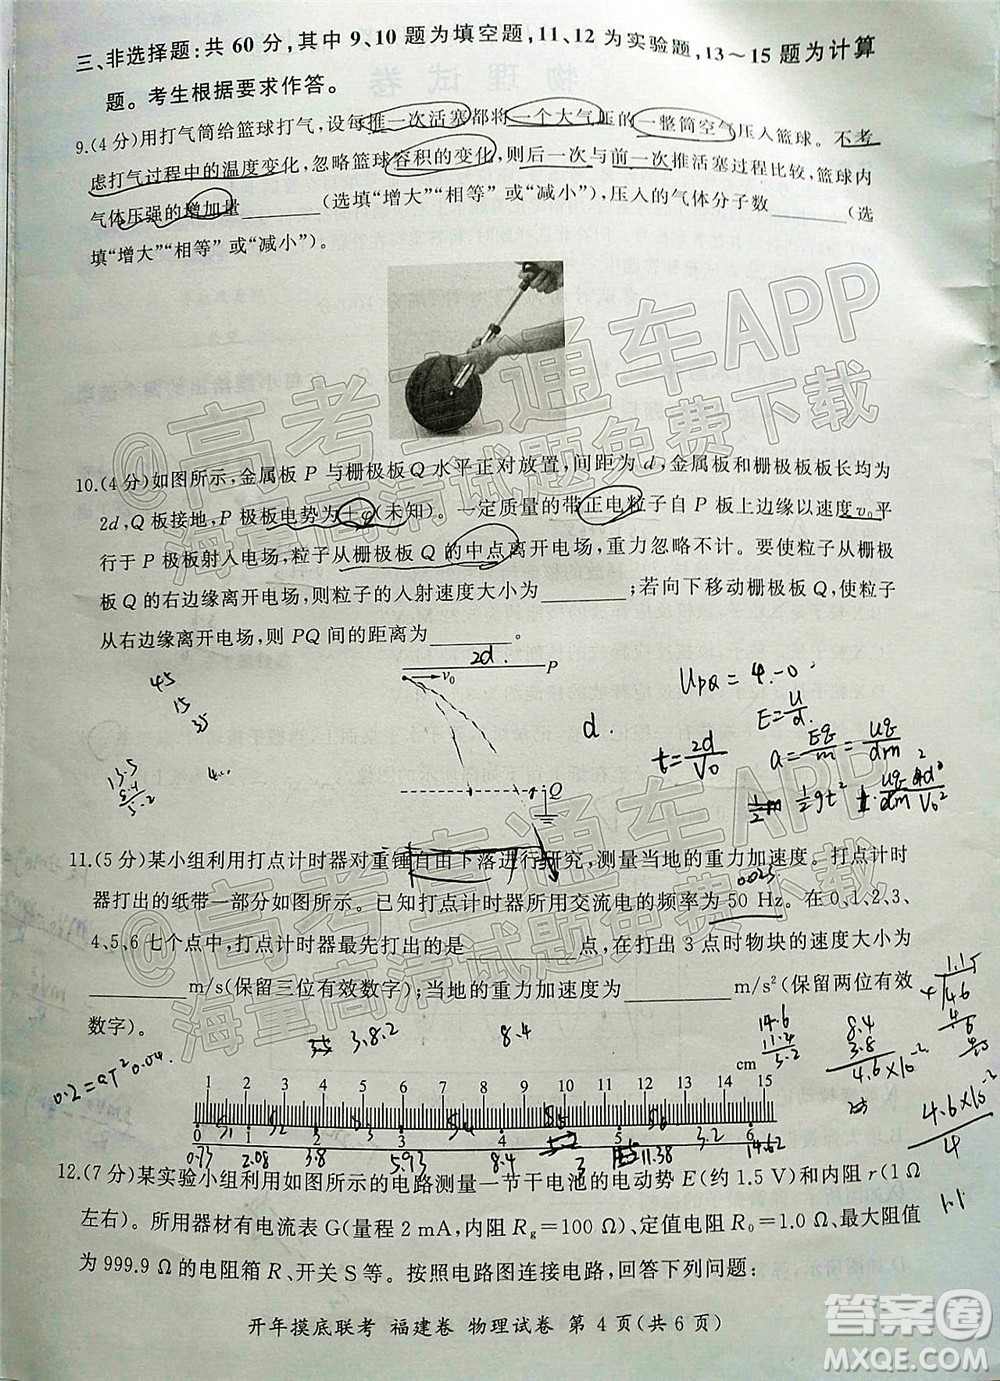 三、非选择题:共60分,其中9、10题为填空题,11、12为实验题,13～15题为计算
题。考生根据要求作答。
9.(4分)用打气筒给篮球打气,设每推一次活塞都将一个大气压的一整筒空气压入篮球。不考
虑打气过程中的温度变化,忽略篮球容积的变化,则后一次与前一次推活塞过程比较,篮球内
气体压强的增加量________(选填“增大”“相等”或“减小”),压入的气体分子数________(选
填“增大”“相等”或“减小”)。
@高考直通车APP
海量高清试题免费下载
10.(4分)如图所示,金属板P与栅极板Q水平正对放置,间距为d,金属板和栅极板板长均为
2d,Q板接地,P极板电势为+φ(未知)。一定质量的带正电粒子自P板上边缘以v₀平
行于P极板射入电场,粒子从栅极板Q的中点离开电场,重力忽略不计。要使粒子从栅极
板Q的右边缘离开电场,则粒子的入射速度大小为________;若向下移动栅极板Q,使粒
子从右边缘离开电场,则PQ间的距离为________。
2d.
P
v₀
Q
d.
45
15
35
U_PQ = φ-0
E=U/d.
t=2d/v₀
a=Eq/m=Uq/dm
@高考直通车APP
海量高清试题免费下载
11.(5分)某小组利用打点计时器对重锤自由下落进行研究,测量当地的重力加速度。打点计时
器打出的纸带一部分如图所示。已知打点计时器所用交流电的频率为50 Hz。在0、1、2、3、
0.02s
4、5、6七个点中,打点计时器最先打出的是________点,在打出3点时物块的速度大小为
________m/s(保留三位有效数字);当地的重力加速度为________m/s²(保留两位有效
数字)。
3.8.2
8.4
0.2=aT²0.04.
14.6
11.4
3.2
8.4
3.8
4.6×10⁻²
4.6×10⁻²
4
1.15
4.6
1.1
cm
1 2 3 4 5 6 7 8 9 10 11 12 13 14 15
0 1 2 3 4 5 6
0.73 2.08 3.8 5.93 8.4 11.38 14.62
3.2
12.(7分)某实验小组利用如图所示的电路测量一节干电池的电动势E(约1.5 V)和内阻r(1 Ω
左右)。所用器材有电流表G(量程2 mA,内阻Rg=100 Ω)、定值电阻R₀=1.0 Ω、最大阻值
为999.9 Ω的电阻箱R、开关S等。按照电路图连接电路,回答下列问题:
开年摸底联考 福建卷 物理试卷 第4页(共6页)
答案圈
MXQE.COM